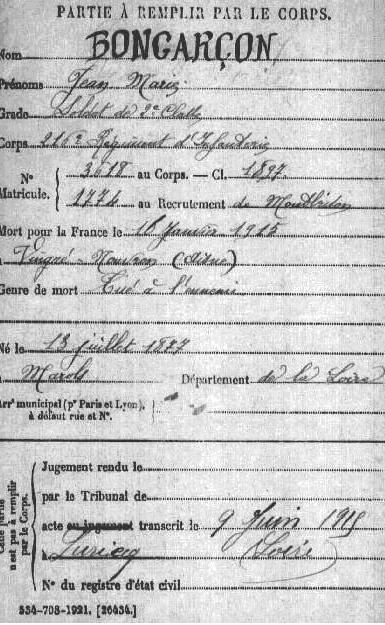 PARTIE À REMPLIR PAR LE CORPS.
Nom BONGARÇON
Prénoms Jean Marie
Grade Soldat de 2e Classe
Corps 216e Régiment d'Infanterie
N° Matricule. 3618 au Corps. — Cl. 1897
1774 au Recrutement de Montbrison
Mort pour la France le 16 Janvier 1915
Vingré - Nouvron (Aisne)
Genre de mort Tué à l'ennemi
Né le 13 juillet 1877
Marols Département de la Loire
Arr^t municipal (p^r Paris et Lyon),
à défaut rue et N°.
Cette partie n'est pas à remplir par le Corps.
Jugement rendu le
par le Tribunal de
acte ou jugement transcrit le 9 Juin 1915
Luriecq Loire
N° du registre d'état civil
534-708-1921. [26434.]